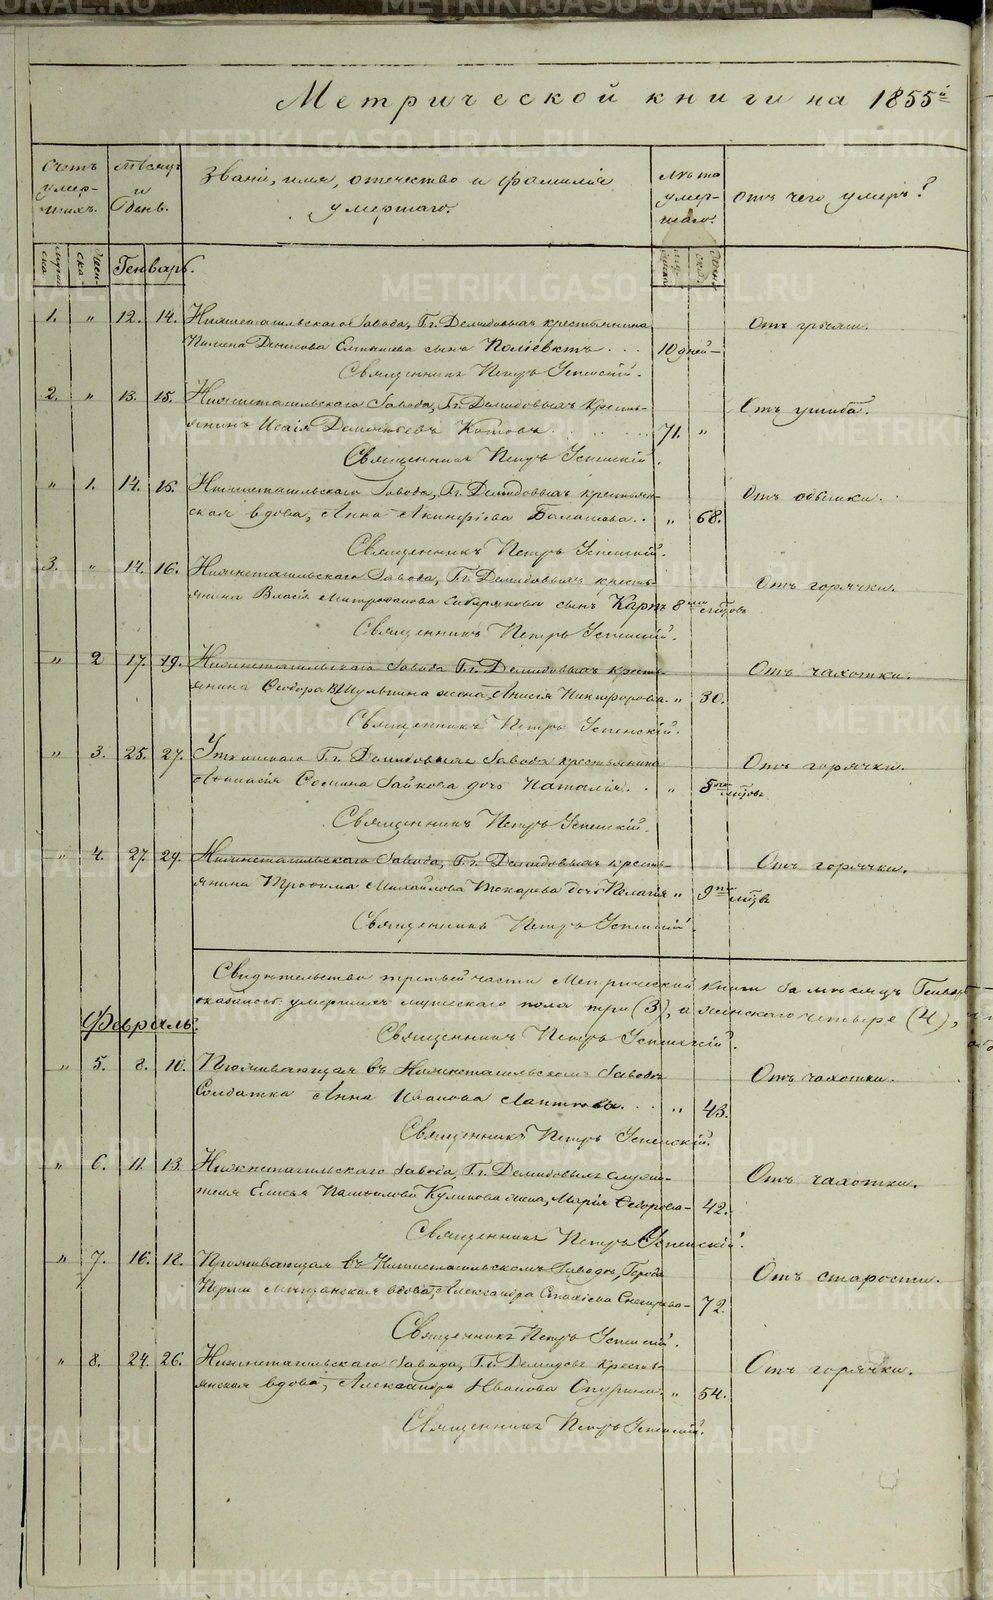 Метрической книги на 1855й
Счетъ умер-шихъ. Мѣсяцъ и день. Званіе, имя, отечество и фамилія умершаго. Лѣта умер-шаго. Отъ чего умеръ?
Генварь.
1. " 12. 14. Нижнетагильскаго Завода, Гг. Демидовыхъ крестьянина Отъ грыжи.
Пимена Денисова сынъ Поліевктъ . . . 10 дней —
Священникъ Петръ Успенскій.
2. " 13. 15. Нижнетагильскаго Завода, Гг. Демидовыхъ кресть- Отъ ушиба.
янинъ Исаія Котовъ . . . . . 71. "
Священникъ Петръ Успенскій.
" 1. 14. 16. Нижнетагильскаго Завода, Гг. Демидовыхъ крестьян- Отъ одышки.
ская вдова, Анна Акинфіева Балашова. . " 68.
Священникъ Петръ Успенскій.
3. " 14. 16. Нижнетагильскаго Завода, Гг. Демидовыхъ кресть- Отъ горячки.
янина Власія Митрофанова Сибирякова сынъ Карпъ 8 ми мѣсяцовъ
Священникъ Петръ Успенскій.
" 2 17. 19. Нижнетагильскаго Завода Гг. Демидовыхъ кресть- Отъ чахотки.
янина Ѳеодора Шульпина жена, Анисія Никифорова. " 30.
Священникъ Петръ Успенскій.
" 3. 25. 27. Уткинскаго Гг. Демидовыхъ Завода крестьянина Отъ горячки.
Аѳанасія Ѳомина Зайкова дочь Наталія. . " 5 мѣсяцовъ
Священникъ Петръ Успенскій.
" 4. 27. 29. Нижнетагильскаго Завода, Гг. Демидовыхъ кресть- Отъ горячки.
янина Трофима Михайлова Токарева дочь Пелагія " 9 ти мѣсяцъ
Священникъ Петръ Успенскій.
Свидѣтельство третьей части Метрической книги за мѣсяцъ Генварь
оказалось умершихъ мужескаго пола три (3), а женскаго четыре (4),
Священникъ Петръ Успенскій.
Февраль.
" 5. 8. 10. Проживающая въ Нижнетагильскомъ Заводѣ Отъ чахотки.
Солдатка Анна Иванова Лаптева. . . " 43.
Священникъ Петръ Успенскій.
" 6. 11. 13. Нижнетагильскаго Завода, Гг. Демидовыхъ служи- Отъ чахотки.
теля Елисея Куликова жена, Марія Ѳедорова — 42.
Священникъ Петръ Успенскій.
" 7. 16. 18. Проживающая въ Нижнетагильскомъ Заводѣ, Города Отъ старости.
Перми мѣщанская вдова, Александра — 72.
Священникъ Петръ Успенскій.
" 8. 24. 26. Нижнетагильскаго Завода, Гг. Демидовыхъ кресть- Отъ горячки.
янская вдова, Александра Иванова " 54.
Священникъ Петръ Успенскій.
METRIKI.GASO-URAL.RU